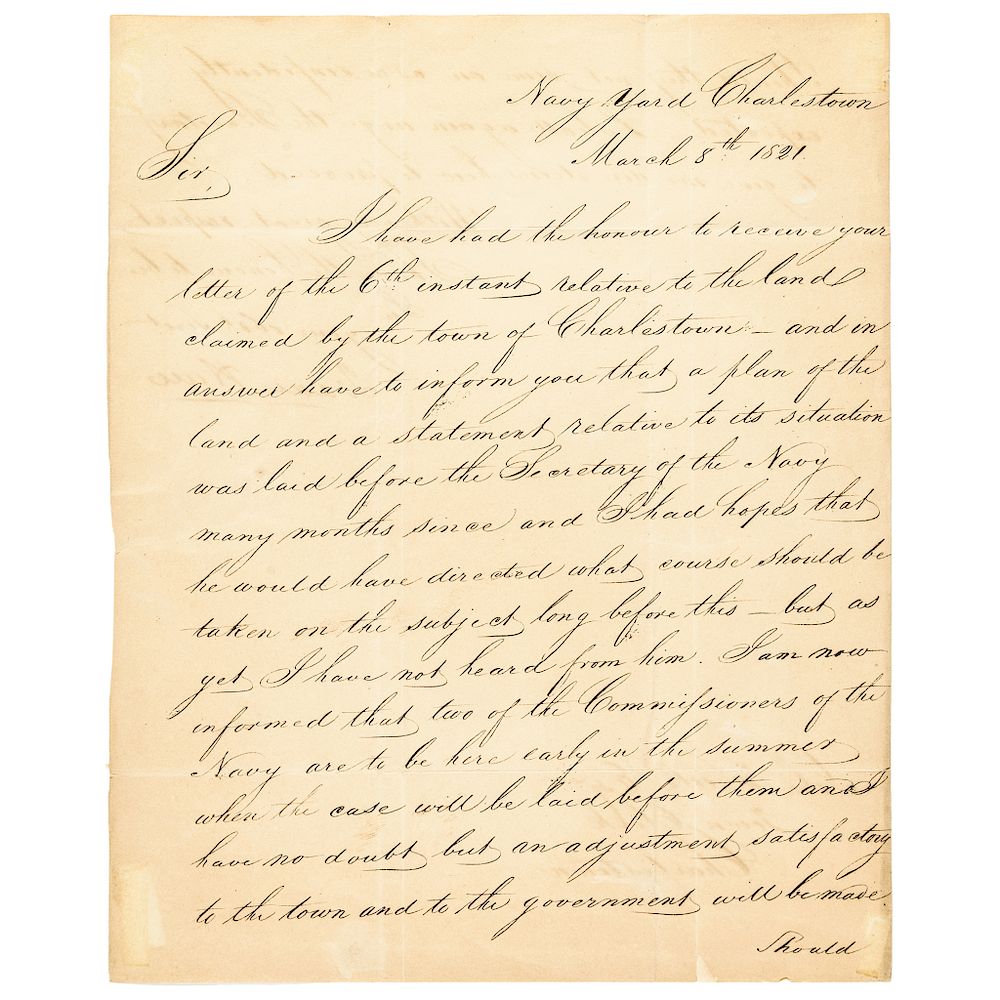 Navy Yard Charlestown
March 8th 1821.
Sir,
I have had the honour to receive your
letter of the 6th instant relative to the land
claimed by the town of Charlestown. – and in
answer have to inform you that a plan of the
land and a statement relative to its situation
was laid before the Secretary of the Navy
many months since and I had hopes that
he would have directed what course should be
taken on the subject long before this – but as
yet I have not heard from him. I am now
informed that two of the Commissioners of the
Navy are to be here early in the summer
when the case will be laid before them and I
have no doubt but an adjustment satisfactory
to the town and to the government will be made.
Should